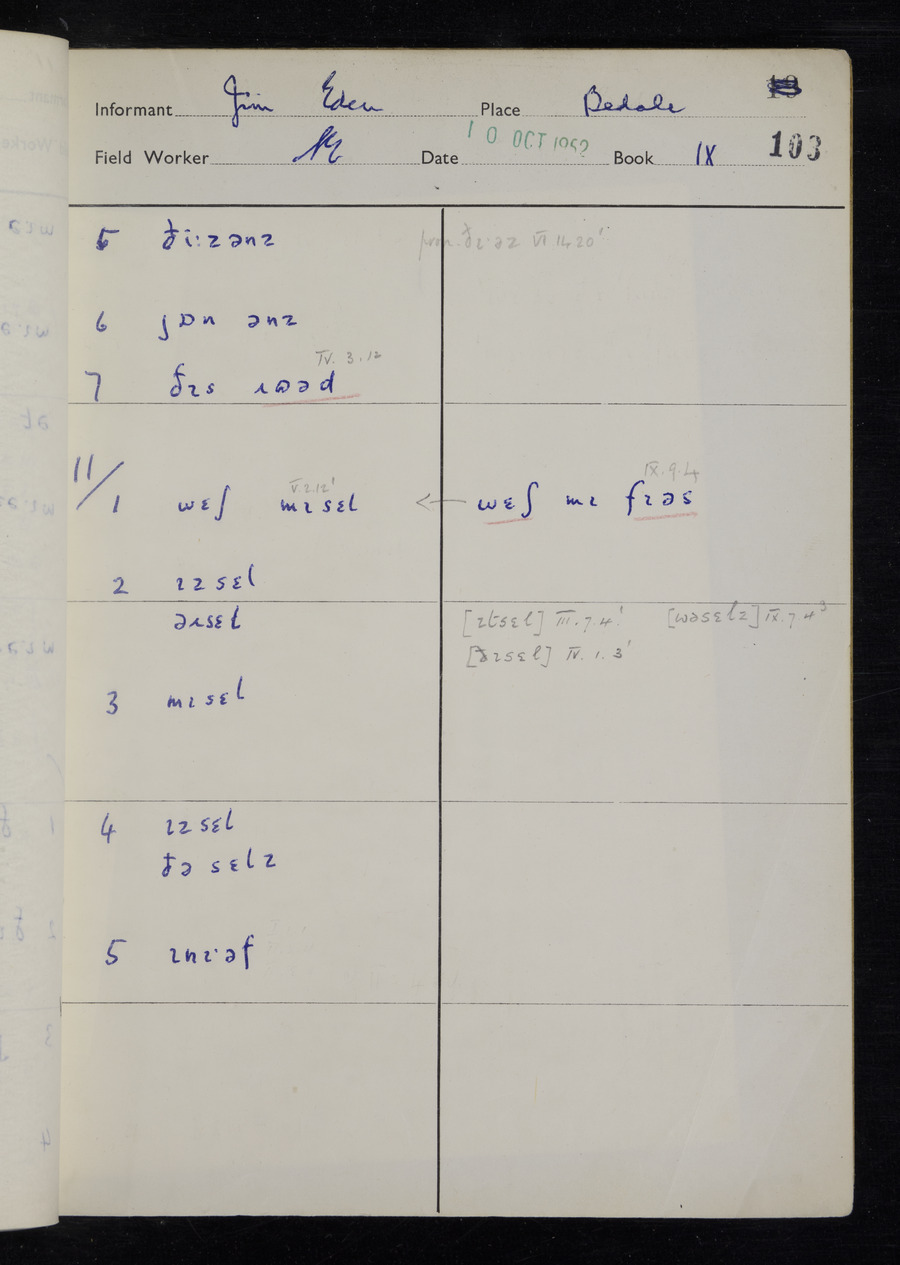 Informant Jim Eden Place Bedale
Field Worker Date 10 OCT 1952 Book IX 103
5 ðiːzənz
pron. ðɪ·əz VI.14.20¹
6 jɒn ənz
IV.3.12
7 ðɪs ɹɷəd
11/
V.2.12¹
IX.9.4
1 wɛʃ mɪsɛl ← wɛʃ mɪ fɪəs
2 ɪzsɛl
əɹsɛl
[ɪtsɛl] III.7.4¹ [wəsɛlz] IX.7.4³
[ðɪsɛl] IV.1.3¹
3 mɪsɛl
4 ɪzsɛl
ðəsɛlz
5 ɪnɪ·əf